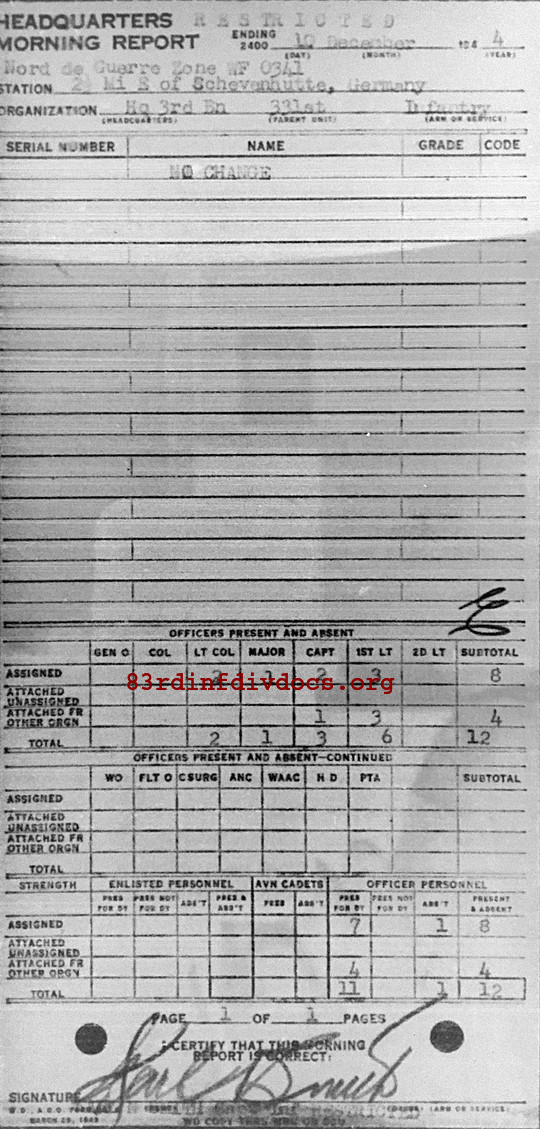 HEADQUARTERS RESTRICTED
MORNING REPORT ENDING 2400 10 December 194 4
(DAY) (MONTH) (YEAR)
Nord de Guerre Zone WF 0341
STATION 2½ Mi E of Schevenhutte, Germany
ORGANIZATION Hq 3rd Bn 331st Infantry
(HEADQUARTERS) (PARENT UNIT) (ARM OR SERVICE)
SERIAL NUMBER NAME GRADE CODE
NO CHANGE
OFFICERS PRESENT AND ABSENT
GEN O COL LT COL MAJOR CAPT 1ST LT 2D LT SUBTOTAL
ASSIGNED 2 1 2 3 8
83rdinfdivdocs.org
ATTACHED UNASSIGNED
ATTACHED FR OTHER ORGN 1 3 4
TOTAL 2 1 3 6 12
OFFICERS PRESENT AND ABSENT—CONTINUED
WO FLT O C SURG ANC WAAC H D PTA SUBTOTAL
ASSIGNED
ATTACHED UNASSIGNED
ATTACHED FR OTHER ORGN
TOTAL
STRENGTH ENLISTED PERSONNEL AVN CADETS OFFICER PERSONNEL
PRES FOR DY PRES NOT FOR DY ABS'T PRES & ABS'T PRES ABS'T PRES FOR DY PRES NOT FOR DY ABS'T PRESENT & ABSENT
ASSIGNED 7 1 8
ATTACHED UNASSIGNED
ATTACHED FR OTHER ORGN 4 4
TOTAL 11 1 12
PAGE 1 OF 1 PAGES
I CERTIFY THAT THIS MORNING
REPORT IS CORRECT:
SIGNATURE
W.D., A.G.O. FORM
(GRADE) (ARM OR SERVICE)
RESTRICTED